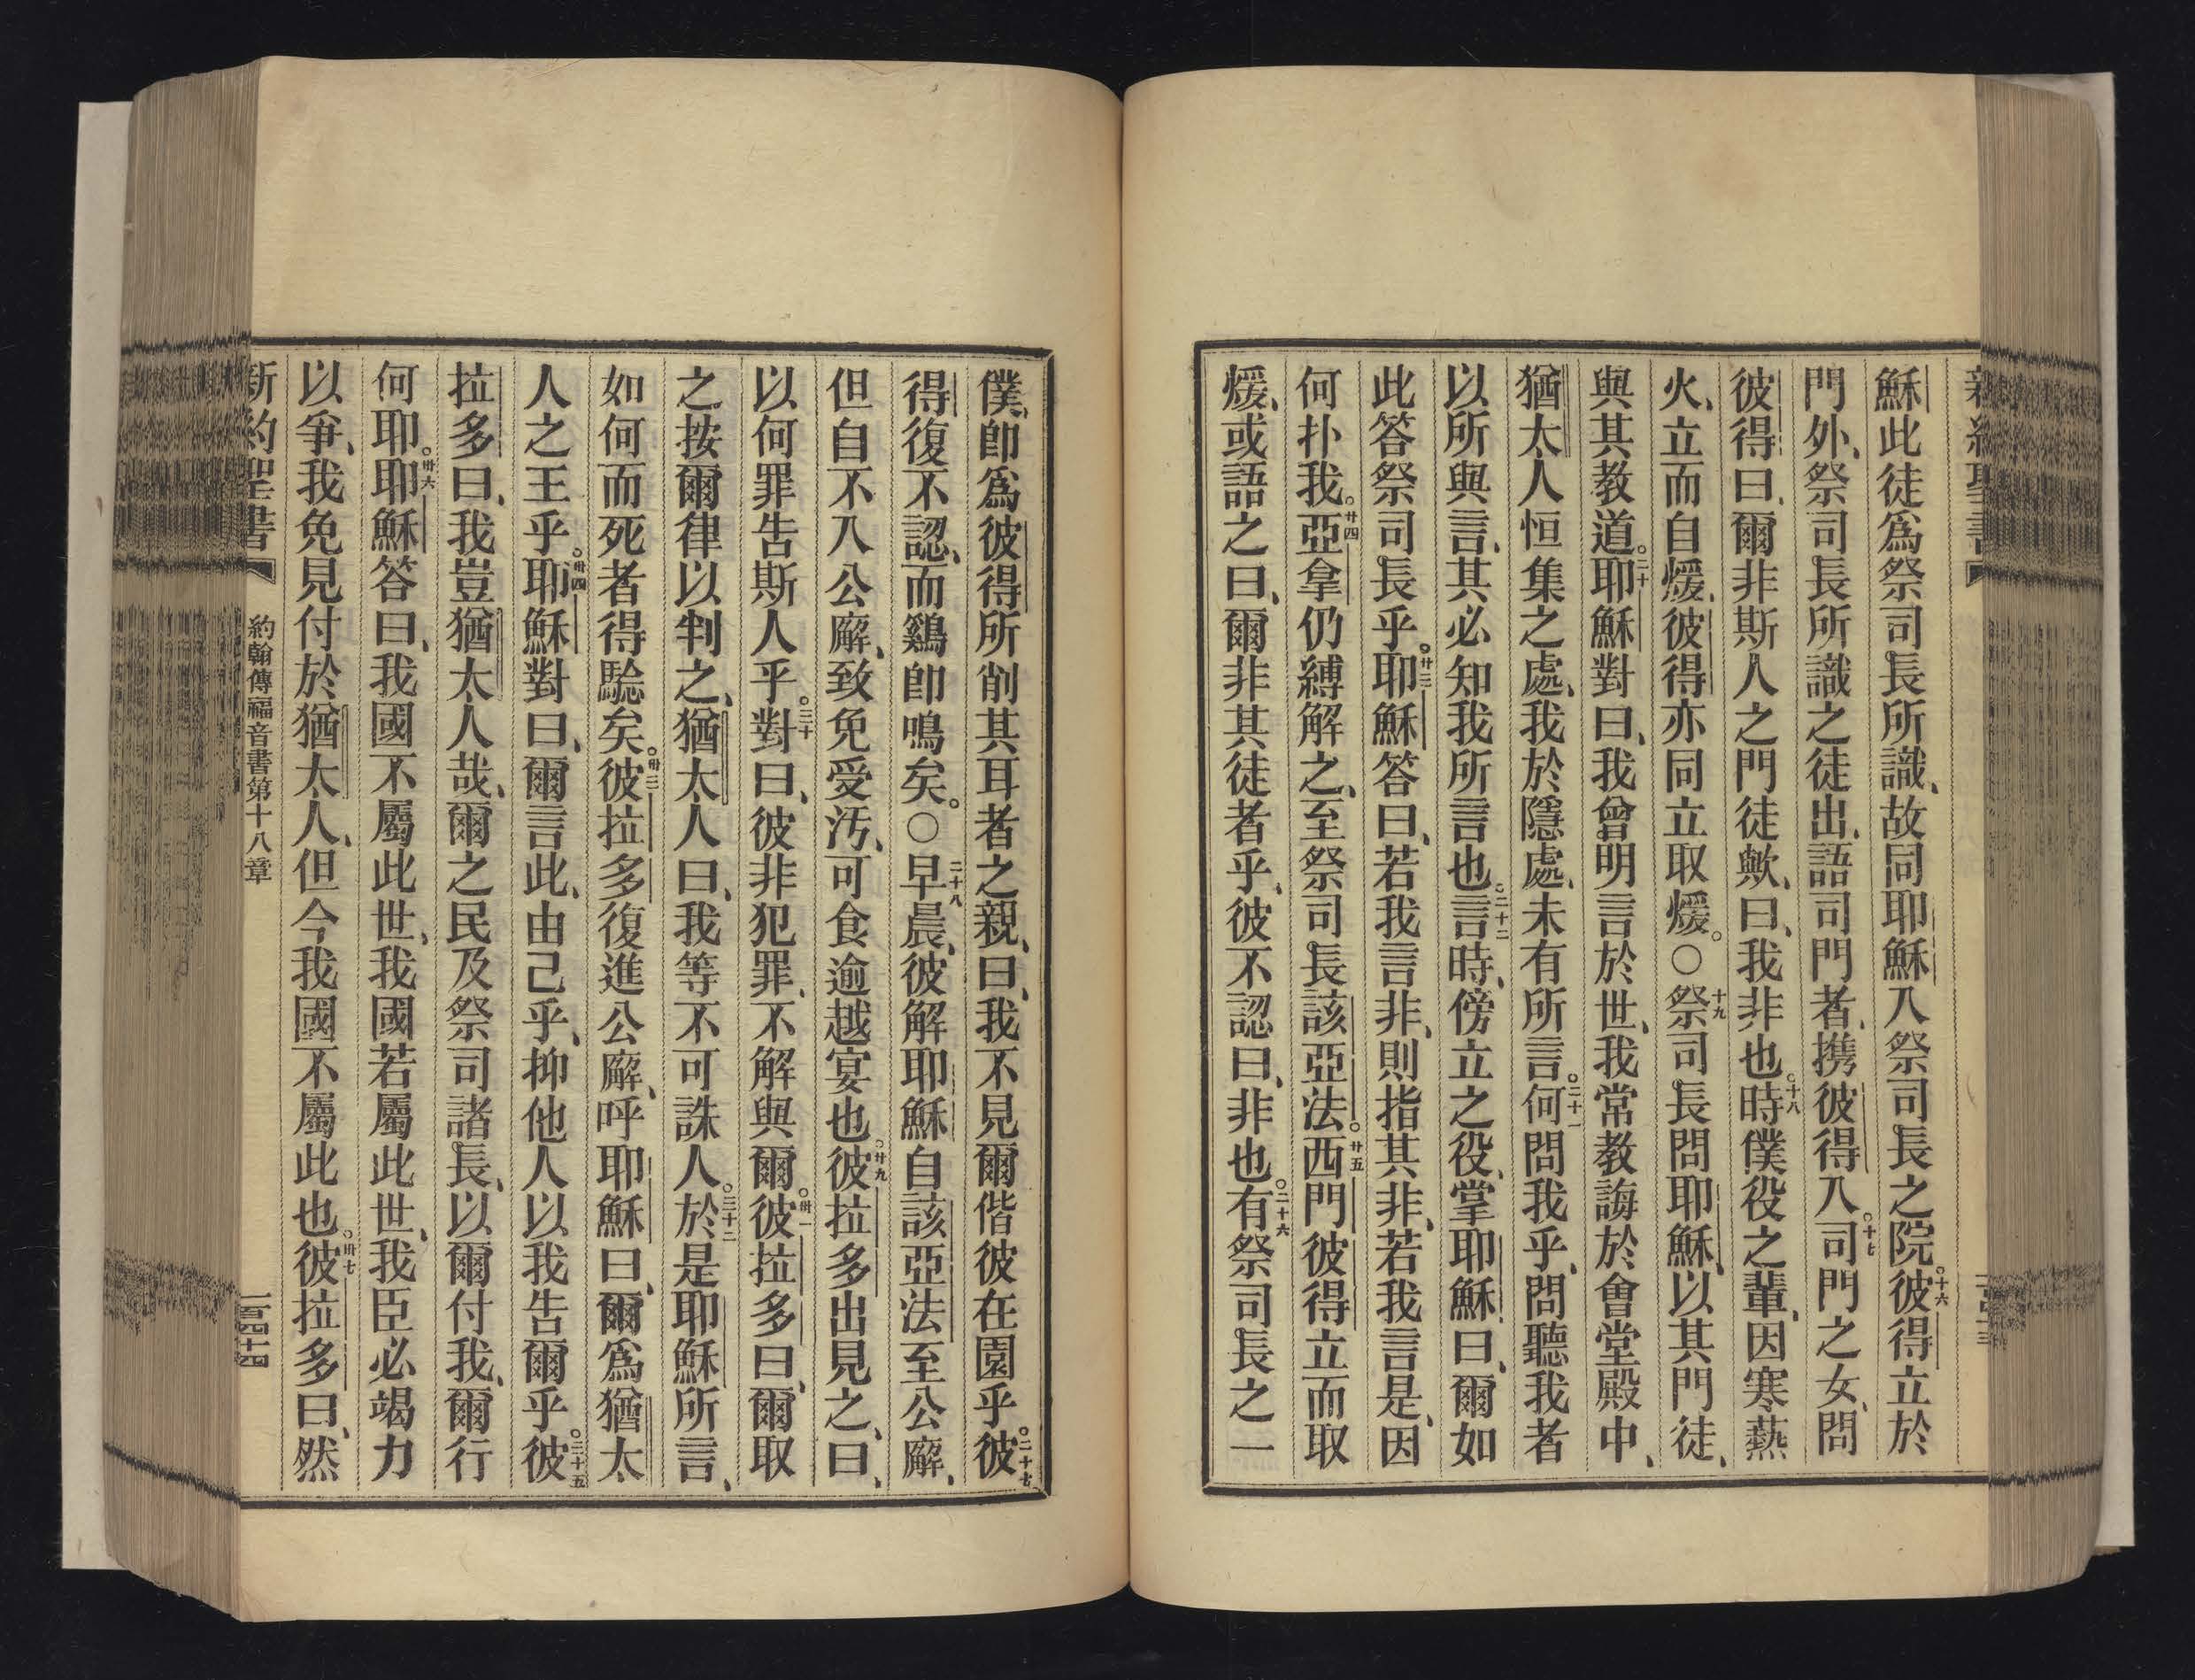 穌此徒爲祭司長所識、故同耶穌入祭司長之院。十六彼得立於
門外、祭司長所識之徒出、語司門者、携彼得入。十七司門之女、問
彼得曰、爾非斯人之門徒歟、曰、我非也。十八時僕役之輩、因寒爇
火、立而自煖、彼得亦同立取煖。〇十九祭司長問耶穌、以其門徒、
與其教道。二十耶穌對曰、我曾明言於世、我常教誨於會堂殿中、
猶太人恒集之處、我於隱處、未有所言。二十一何問我乎、問聽我者
以所與言、其必知我所言也。二十二言時、傍立之役、掌耶穌曰、爾如
此答祭司長乎。廿三耶穌答曰、若我言非、則指其非、若我言是、因
何扑我。廿四亞拿仍縛解之、至祭司長該亞法。廿五西門彼得立而取
煖、或語之曰、爾非其徒者乎、彼不認曰、非也。二十六有祭司長之一
僕、卽爲彼得所削其耳者之親、曰、我不見爾偕彼在園乎。二十七彼
得復不認、而鷄卽鳴矣。〇二十八早晨、彼解耶穌自該亞法至公廨、
但自不入公廨、致免受汚、可食逾越宴也。廿九彼拉多出見之、曰、
以何罪告斯人乎。三十對曰、彼非犯罪、不解與爾。卅一彼拉多曰、爾取
之按爾律以判之、猶太人曰、我等不可誅人。三十二於是耶穌所言、
如何而死者得騐矣。卅三彼拉多復進公廨、呼耶穌曰、爾爲猶太
人之王乎。卅四耶穌對曰、爾言此、由己乎、抑他人以我告爾乎。三十五彼
拉多曰、我豈猶太人哉、爾之民及祭司諸長、以爾付我、爾行
何耶。卅六耶穌答曰、我國不屬此世、我國若屬此世、我臣必竭力
以爭、我免見付於猶太人、但今我國不屬此也。卅七彼拉多曰、然
新約聖書 約翰傳福音書第十八章 一百四十四